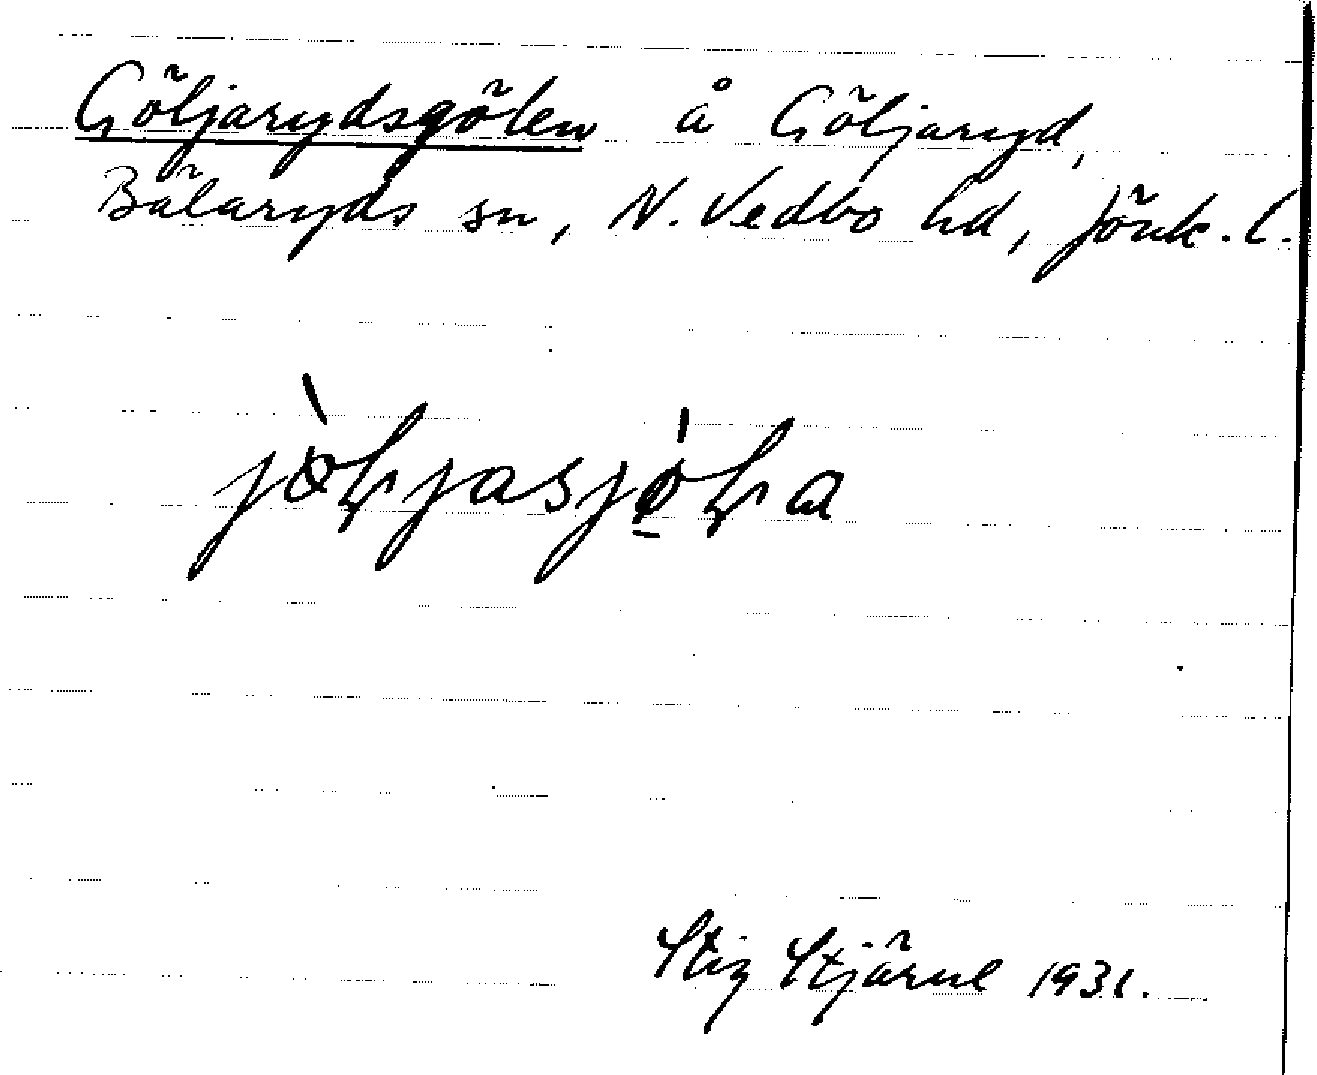 Göljarydsgölen å Göljaryd,
Bälaryds sn, N. Vedbo hd, Jönk. l.
Stig Stjärne 1931.